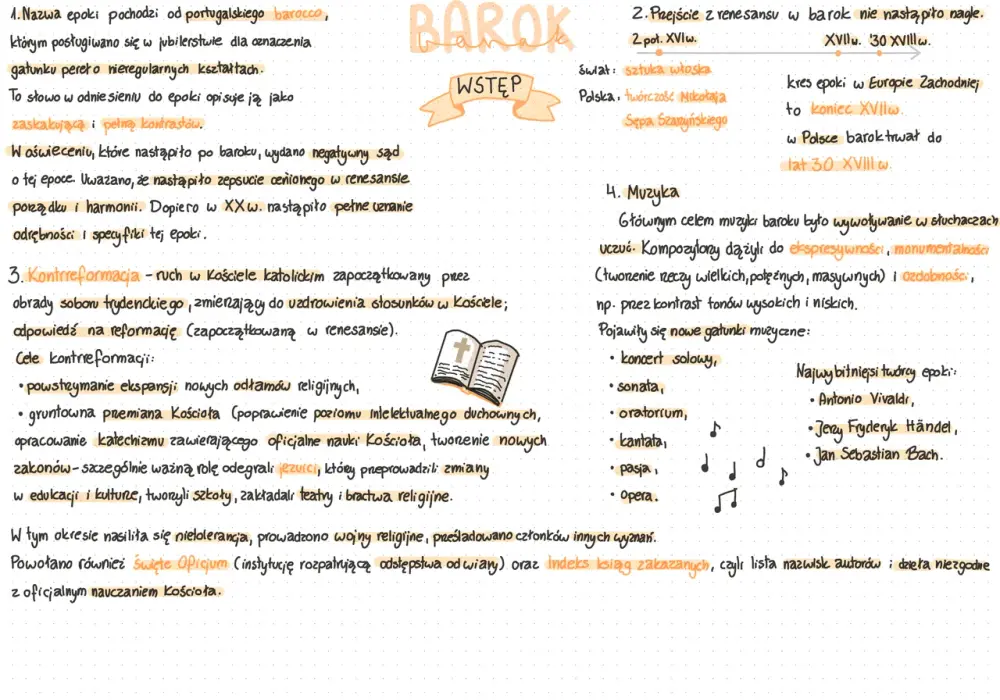 BAROK
barok
WSTĘP
1. Nazwa epoki pochodzi od portugalskiego barocco,
którym posługiwano się w jubilerstwie dla oznaczenia
gatunku pereł o nieregularnych kształtach.
To słowo w odniesieniu do epoki opisuje ją jako
zaskakującą i pełną kontrastów.
W oświeceniu, które nastąpiło po baroku, wydano negatywny sąd
o tej epoce. Uważano, że nastąpiło zepsucie cenionego w renesansie
porządku i harmonii. Dopiero w XX w. nastąpiło pełne uznanie
odrębności i specyfiki tej epoki.
2. Przejście z renesansu w barok nie nastąpiło nagle.
2 poł. XVI w. XVII w. '30 XVIII w.
świat: sztuka włoska
Polska: twórczość Mikołaja
Sępa Szarzyńskiego
kres epoki w Europie Zachodniej
to koniec XVII w.
w Polsce barok trwał do
lat 30 XVIII w.
3. Kontrreformacja - ruch w Kościele katolickim zapoczątkowany przez
obrady soboru trydenckiego, zmierzający do uzdrowienia stosunków w Kościele;
odpowiedź na reformację (zapoczątkowaną w renesansie).
Cele kontrreformacji:
• powstrzymanie ekspansji nowych odłamów religijnych,
• gruntowna przemiana Kościoła (poprawienie poziomu intelektualnego duchownych,
opracowanie katechizmu zawierającego oficjalne nauki Kościoła, tworzenie nowych
zakonów - szczególnie ważną rolę odegrali jezuici, którzy przeprowadzili zmiany
w edukacji i kulturze, tworzyli szkoły, zakładali teatry i bractwa religijne.
4. Muzyka
Głównym celem muzyki baroku było wywoływanie w słuchaczach
uczuć. Kompozytorzy dążyli do ekspresywności, monumentalności
(tworzenie rzeczy wielkich, potężnych, masywnych) i ozdobności,
np. przez kontrast tonów wysokich i niskich.
Pojawiły się nowe gatunki muzyczne:
• koncert solowy,
• sonata,
• oratorium,
• kantata,
• pasja,
• opera.
Najwybitniejsi twórcy epoki:
• Antonio Vivaldi,
• Jerzy Fryderyk Händel,
• Jan Sebastian Bach.
W tym okresie nasiliła się nietolerancja, prowadzono wojny religijne, prześladowano członków innych wyznań.
Powołano również Święte Oficjum (instytucję rozpatrującą odstępstwa od wiary) oraz Indeks ksiąg zakazanych, czyli lista nazwisk autorów i dzieła niezgodne
z oficjalnym nauczaniem Kościoła.